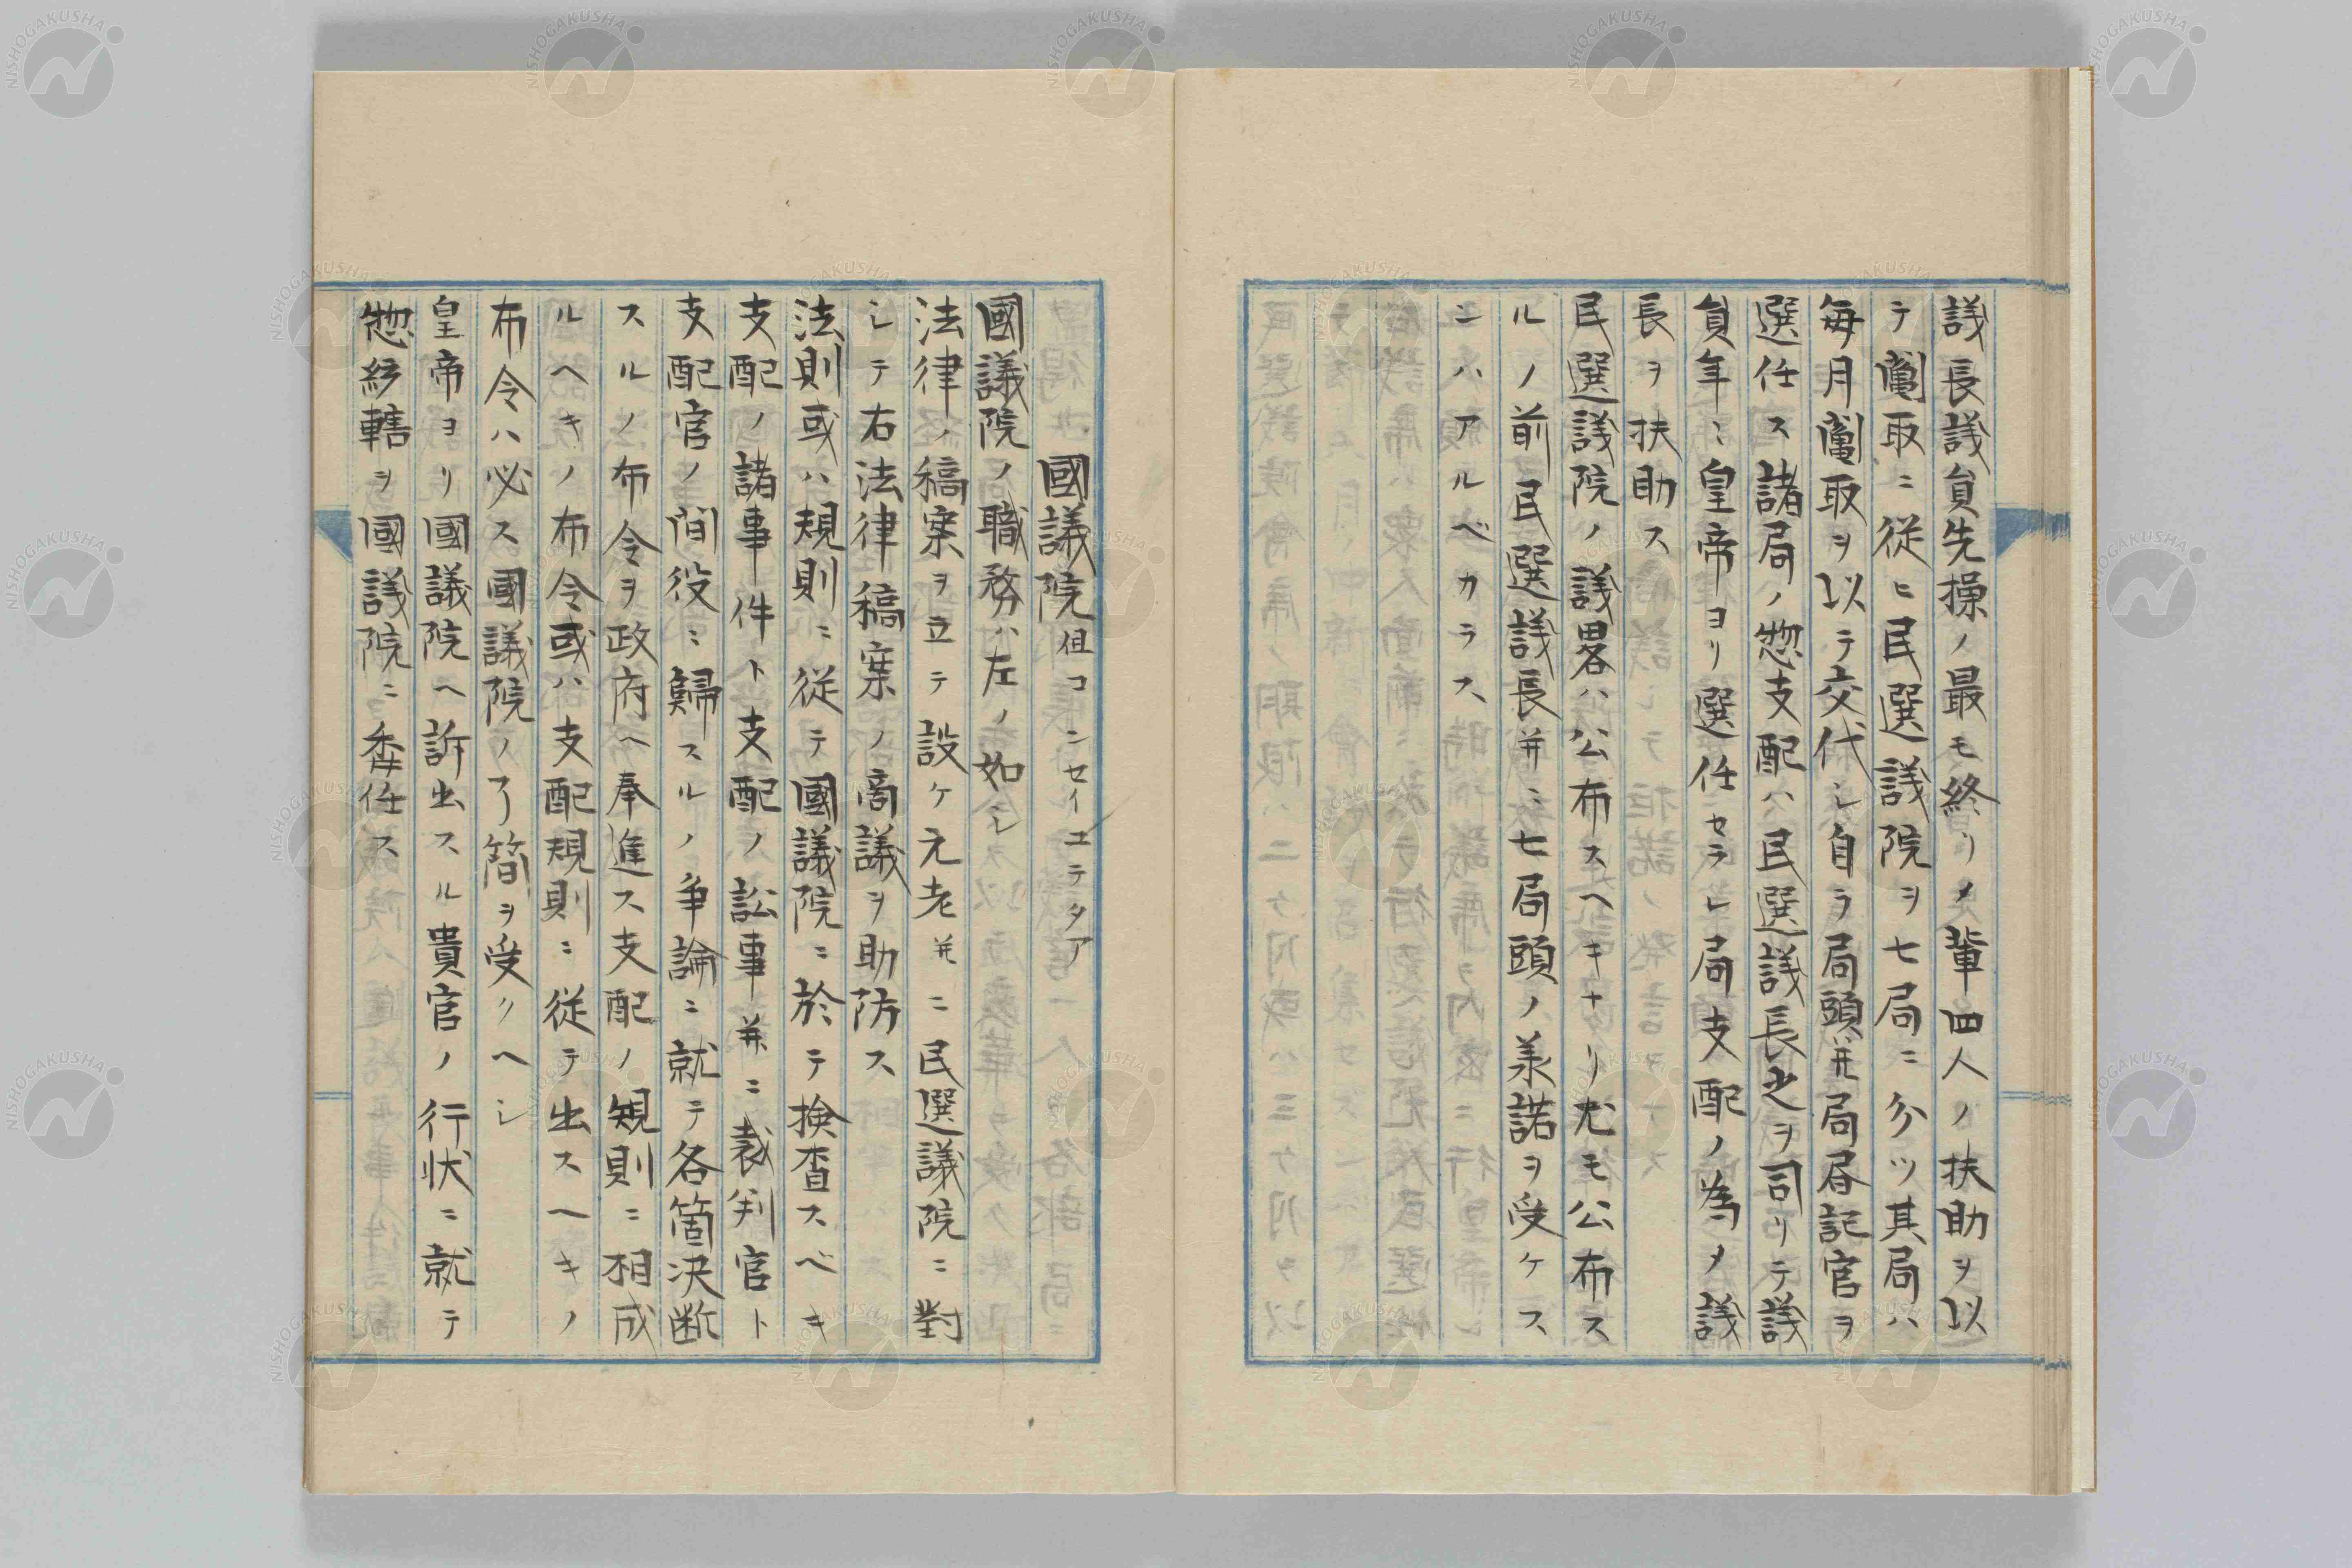 議長議員先操ノ最モ終リノ輩四人ノ扶助ヲ以
テ鬮取ニ従ヒ民選議院ヲ七局ニ分ツ其局ハ
毎月鬮取ヲ以テ交代シ自ラ局頭并局屠記官ヲ
選任ス諸局ノ惣支配ハ民選議長之ヲ司リテ議
員年ニ皇帝ヨリ選任セラレ局支配ノ為メ議
長ヲ扶助ス
民選議院ノ議畧ハ公布スヘキナリ尤モ公布ス
ルノ前民選議長并ニ七局頭ノ承諾ヲ受ケス
ンハアルベカラス
國議院 但コンセイユテタア
國議院ノ職務ハ左ノ如シ
法律ノ稿案ヲ立テ設ケ元老并ニ民選議院ニ對
シテ右法律稿案ノ商議ヲ助防ス
法則或ハ規則ニ従テ國議院ニ於テ検査スベキ
支配ノ諸事件ト支配ノ訟事并ニ裁判官ト
支配官ノ間役ニ歸スルノ争論ニ就テ各箇決断
スルノ布令ヲ政府ヘ奉進ス支配ノ規則ニ相成
ルヘキノ布令或ハ支配規則ニ従テ出スヘキノ
布令ハ必ス國議院ノ了簡ヲ受クヘシ
皇帝ヨリ國議院ヘ訴出スル貴官ノ行状ニ就テ
惣紛轄ヲ國議院ニ委任ス
NISHOGAKUSHA